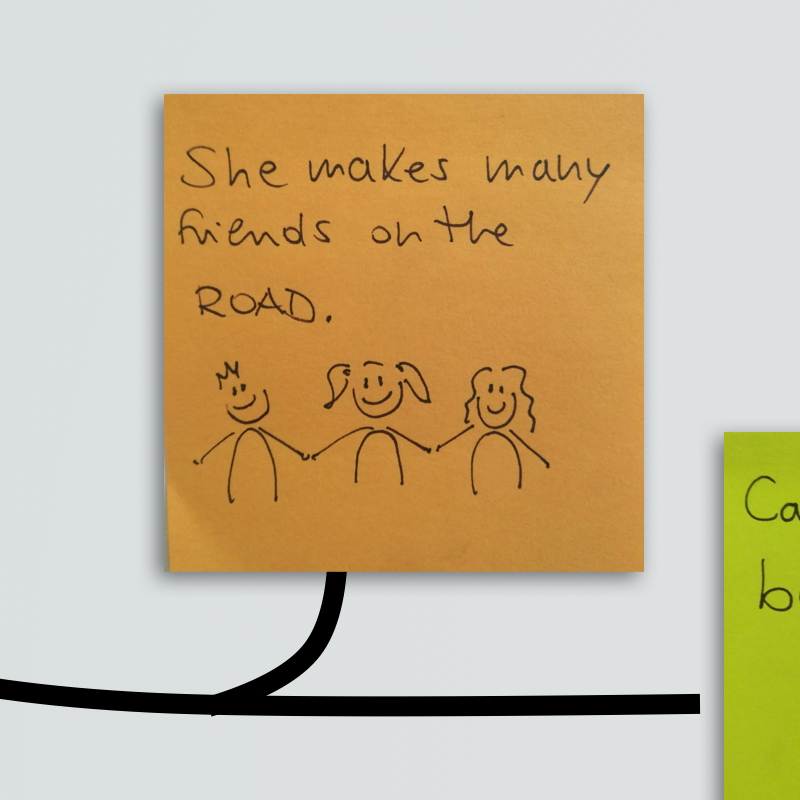 She makes many
friends on the
ROAD.